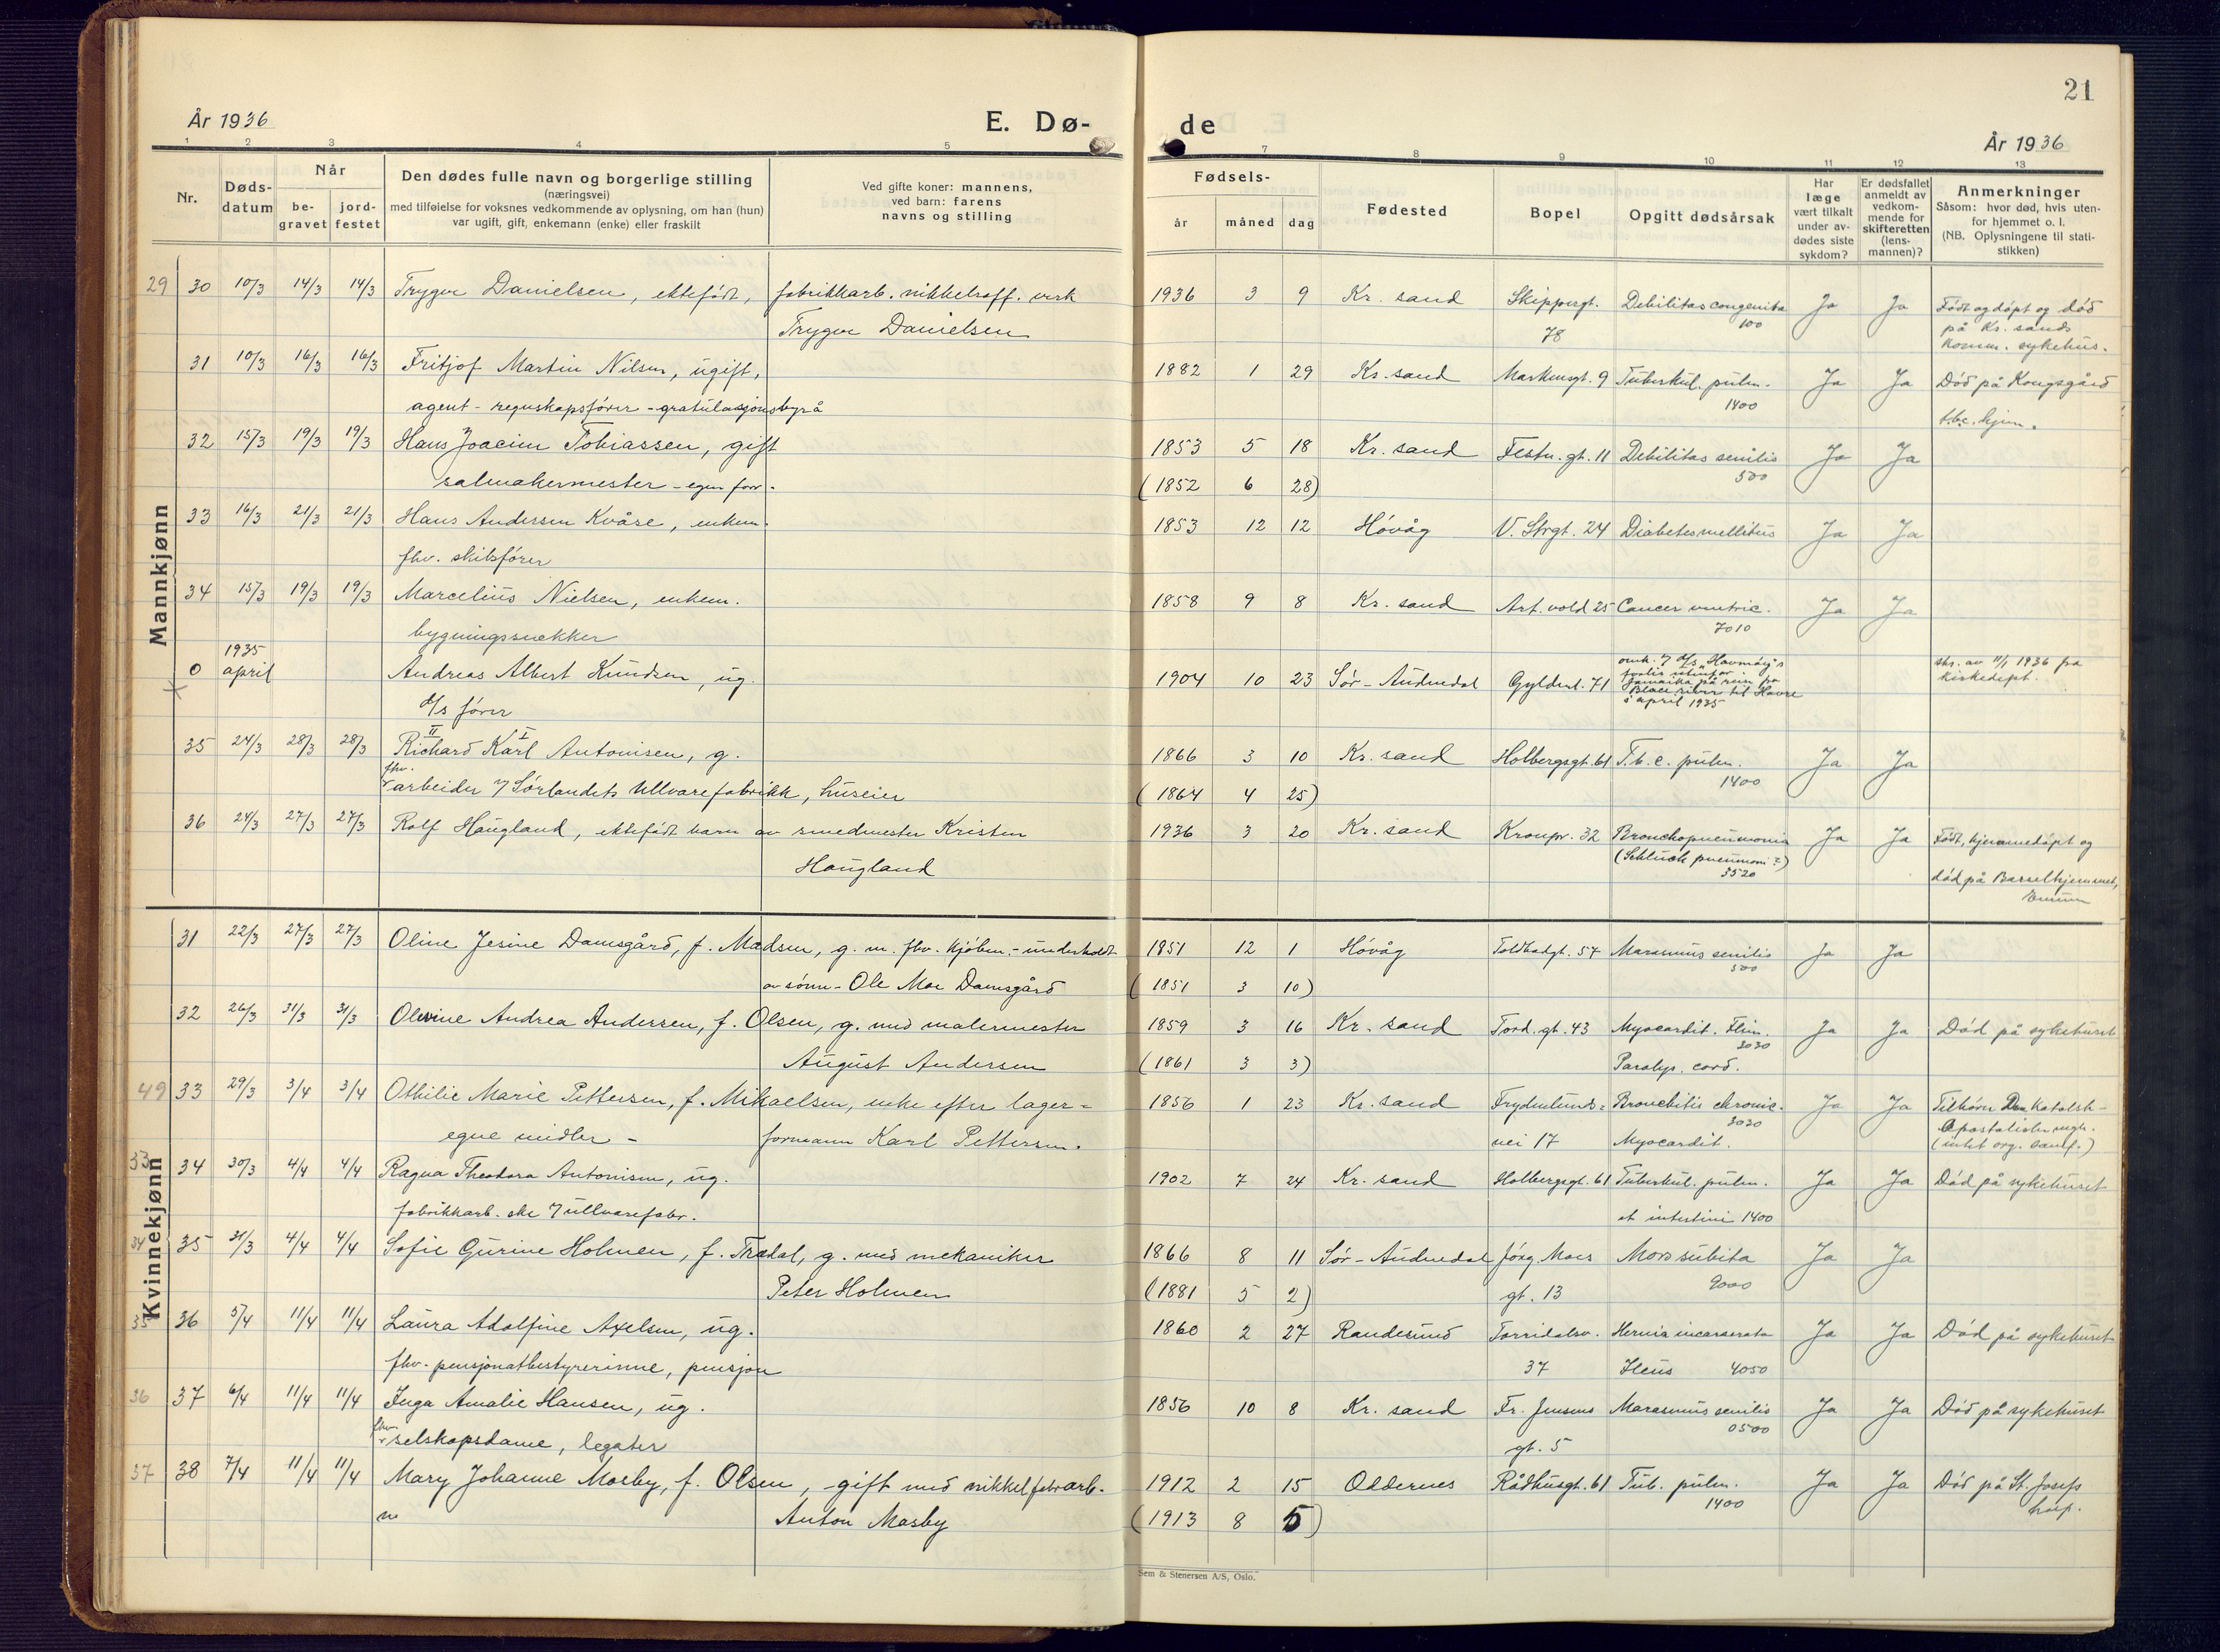 21
År 1936
E. Dø-
de
År 1936
1 2 3 4 5 7 8 9 10 11 12 13
Nr.
Døds-
datum
Når
be-
gravet
jord-
festet
Den dødes fulle navn og borgerlige stilling
(næringsvei)
med tilføielse for voksnes vedkommende av oplysning, om han (hun)
var ugift, gift, enkemann (enke) eller fraskilt
Ved gifte koner: mannens,
ved barn: farens
navns og stilling
Fødsels-
år måned dag
Fødested
Bopel
Opgitt dødsårsak
Har
læge
vært tilkalt
under av-
dødes siste
sykdom?
Er dødsfallet
anmeldt av
vedkom-
mende for
skifteretten
(lens-
mannen)?
Anmerkninger
Såsom: hvor død, hvis uten-
for hjemmet o. l.
(NB. Oplysningene til stati-
stikken)
Mannkjønn
29 30 10/3 14/3 14/3 Trygve Danielsen, ektefødt, fabrikkarb. nikkelraff. verk 1936 3 9 Kr. sand Skippergt. Debilitas congenita Ja Ja Født og døpt og død
Trygve Danielsen 78 100 på Kr. sands
komm. sykehus.
31 10/3 16/3 16/3 Fritjof Martin Nilsen, ugift, 1882 1 29 Kr. sand Markensgt. 9 Tuberkul. pulm. Ja Ja Død på Kongsgård
agent - regnskapsfører - gratulasjonsbyrå 1400 t.b.c. hjem.
32 15/3 19/3 19/3 Hans Joacim Tobiassen, gift 1853 5 18 Kr. sand Festn. gt. 11 Debilitas senilis Ja Ja
salmakermester - egen forr. (1852 6 28) 500
33 16/3 21/3 21/3 Hans Andersen Kvåse, enkem. 1853 12 12 Høvåg V. Strgt. 24 Diabetes mellitus Ja Ja
fhv. skibsfører
34 15/3 19/3 19/3 Marcelius Nielsen, enkem. 1858 9 8 Kr. sand Art. vold 25 Cancer ventric. Ja Ja
bygningssnekker 7010
1935
0 april Andreas Albert Knudsen, ug. 1904 10 23 Sør-Audnedal Gyldenl. 71 omk. 7 d/s "Havmøy"s
forlis utenfor
Jamaika på reise fra
Black river til Havre
i april 1935
skr. av 11/1 1936 fra
kirkedept.
d/s fører
II I
35 24/3 28/3 28/3 Richard Karl Antonisen, g. 1866 3 10 Kr. sand Holbergsgt. 61 T. b. c. pulm. Ja Ja
fhv. arbeider v/ Sørlandets Ullvarefabrikk, huseier (1864 4 25) 1400
36 24/3 27/3 27/3 Rolf Haugland, ektefødt barn av smedmester Kristen 1936 3 20 Kr. sand Kronpr. 32 Bronchopneumonia Ja Ja Født, hjemmedøpt og
Haugland (Schluck pneumoni?) 3520 død på Barselhjemmet,
Kvinnekjønn
31 22/3 27/3 27/3 Oline Jesine Damsgård, f. Madsen, g. m. fhv. kjøbm. - underholdt 1851 12 1 Høvåg Toldbodgt. 57 Marasmus senilis Ja Ja
av sønn - Ole Moe Damsgård (1851 3 10) 500
32 26/3 31/3 31/3 Olevine Andrea Andersen, f. Olsen, g. med malermester 1859 3 16 Kr. sand Tord. gt. 43 Myocardit. Flim. Ja Ja Død på sykehuset
August Andersen (1861 3 3) 3030 Paralys. cord.
49 33 29/3 3/4 3/4 Othilie Marie Pettersen, f. Mikaelsen, enke efter lager- 1856 1 23 Kr. sand Frydenlunds- Bronchitis chronic. Ja Ja Tilhører Den Katolsk-
egne midler - formann Karl Pettersen. vei 17 3020 Myocardit. Apostoliske mgh.
(intet org. samf.)
33 34 30/3 4/4 4/4 Ragna Theodora Antonisen, ug. 1902 7 24 Kr. sand Holbergsgt. 61 Tuberkul. pulm. Ja Ja Død på sykehuset
fabrikkarb. ske v/ullvarefabr. et intestini 1400
34 35 31/3 4/4 4/4 Sofie Gurine Holmen, f. Trædal, g. med mekaniker 1866 8 11 Sør-Audnedal Jørg. Moes Mors subita Ja Ja
Peter Holmen (1881 5 2) gt. 13 9000
35 36 5/4 11/4 11/4 Laura Adolfine Axelsen, ug. 1860 2 27 Randesund Torridalsv. Hernia incarserata Ja Ja Død på sykehuset
fhv. pensjonatbestyrerinne, pensjon 37 Ileus 4050
36 37 6/4 11/4 11/4 Inga Amalie Hansen, ug. 1856 10 8 Kr. sand Fr. Jensens Marasmus senilis Ja Ja Død på sykehuset
fhv. selskapsdame, legater gt. 5 0500
37 38 7/4 11/4 11/4 Mary Johanne Mosby, f. Olsen, - gift med nikkelfabrarb. 1912 2 15 Oddernes Rådhusgt. 61 Tub. pulm. Ja Ja Død på St. Josefs
Anton Mosby (1913 8 5) 1400 hosp.
Sem & Stenersen A/S, Oslo.